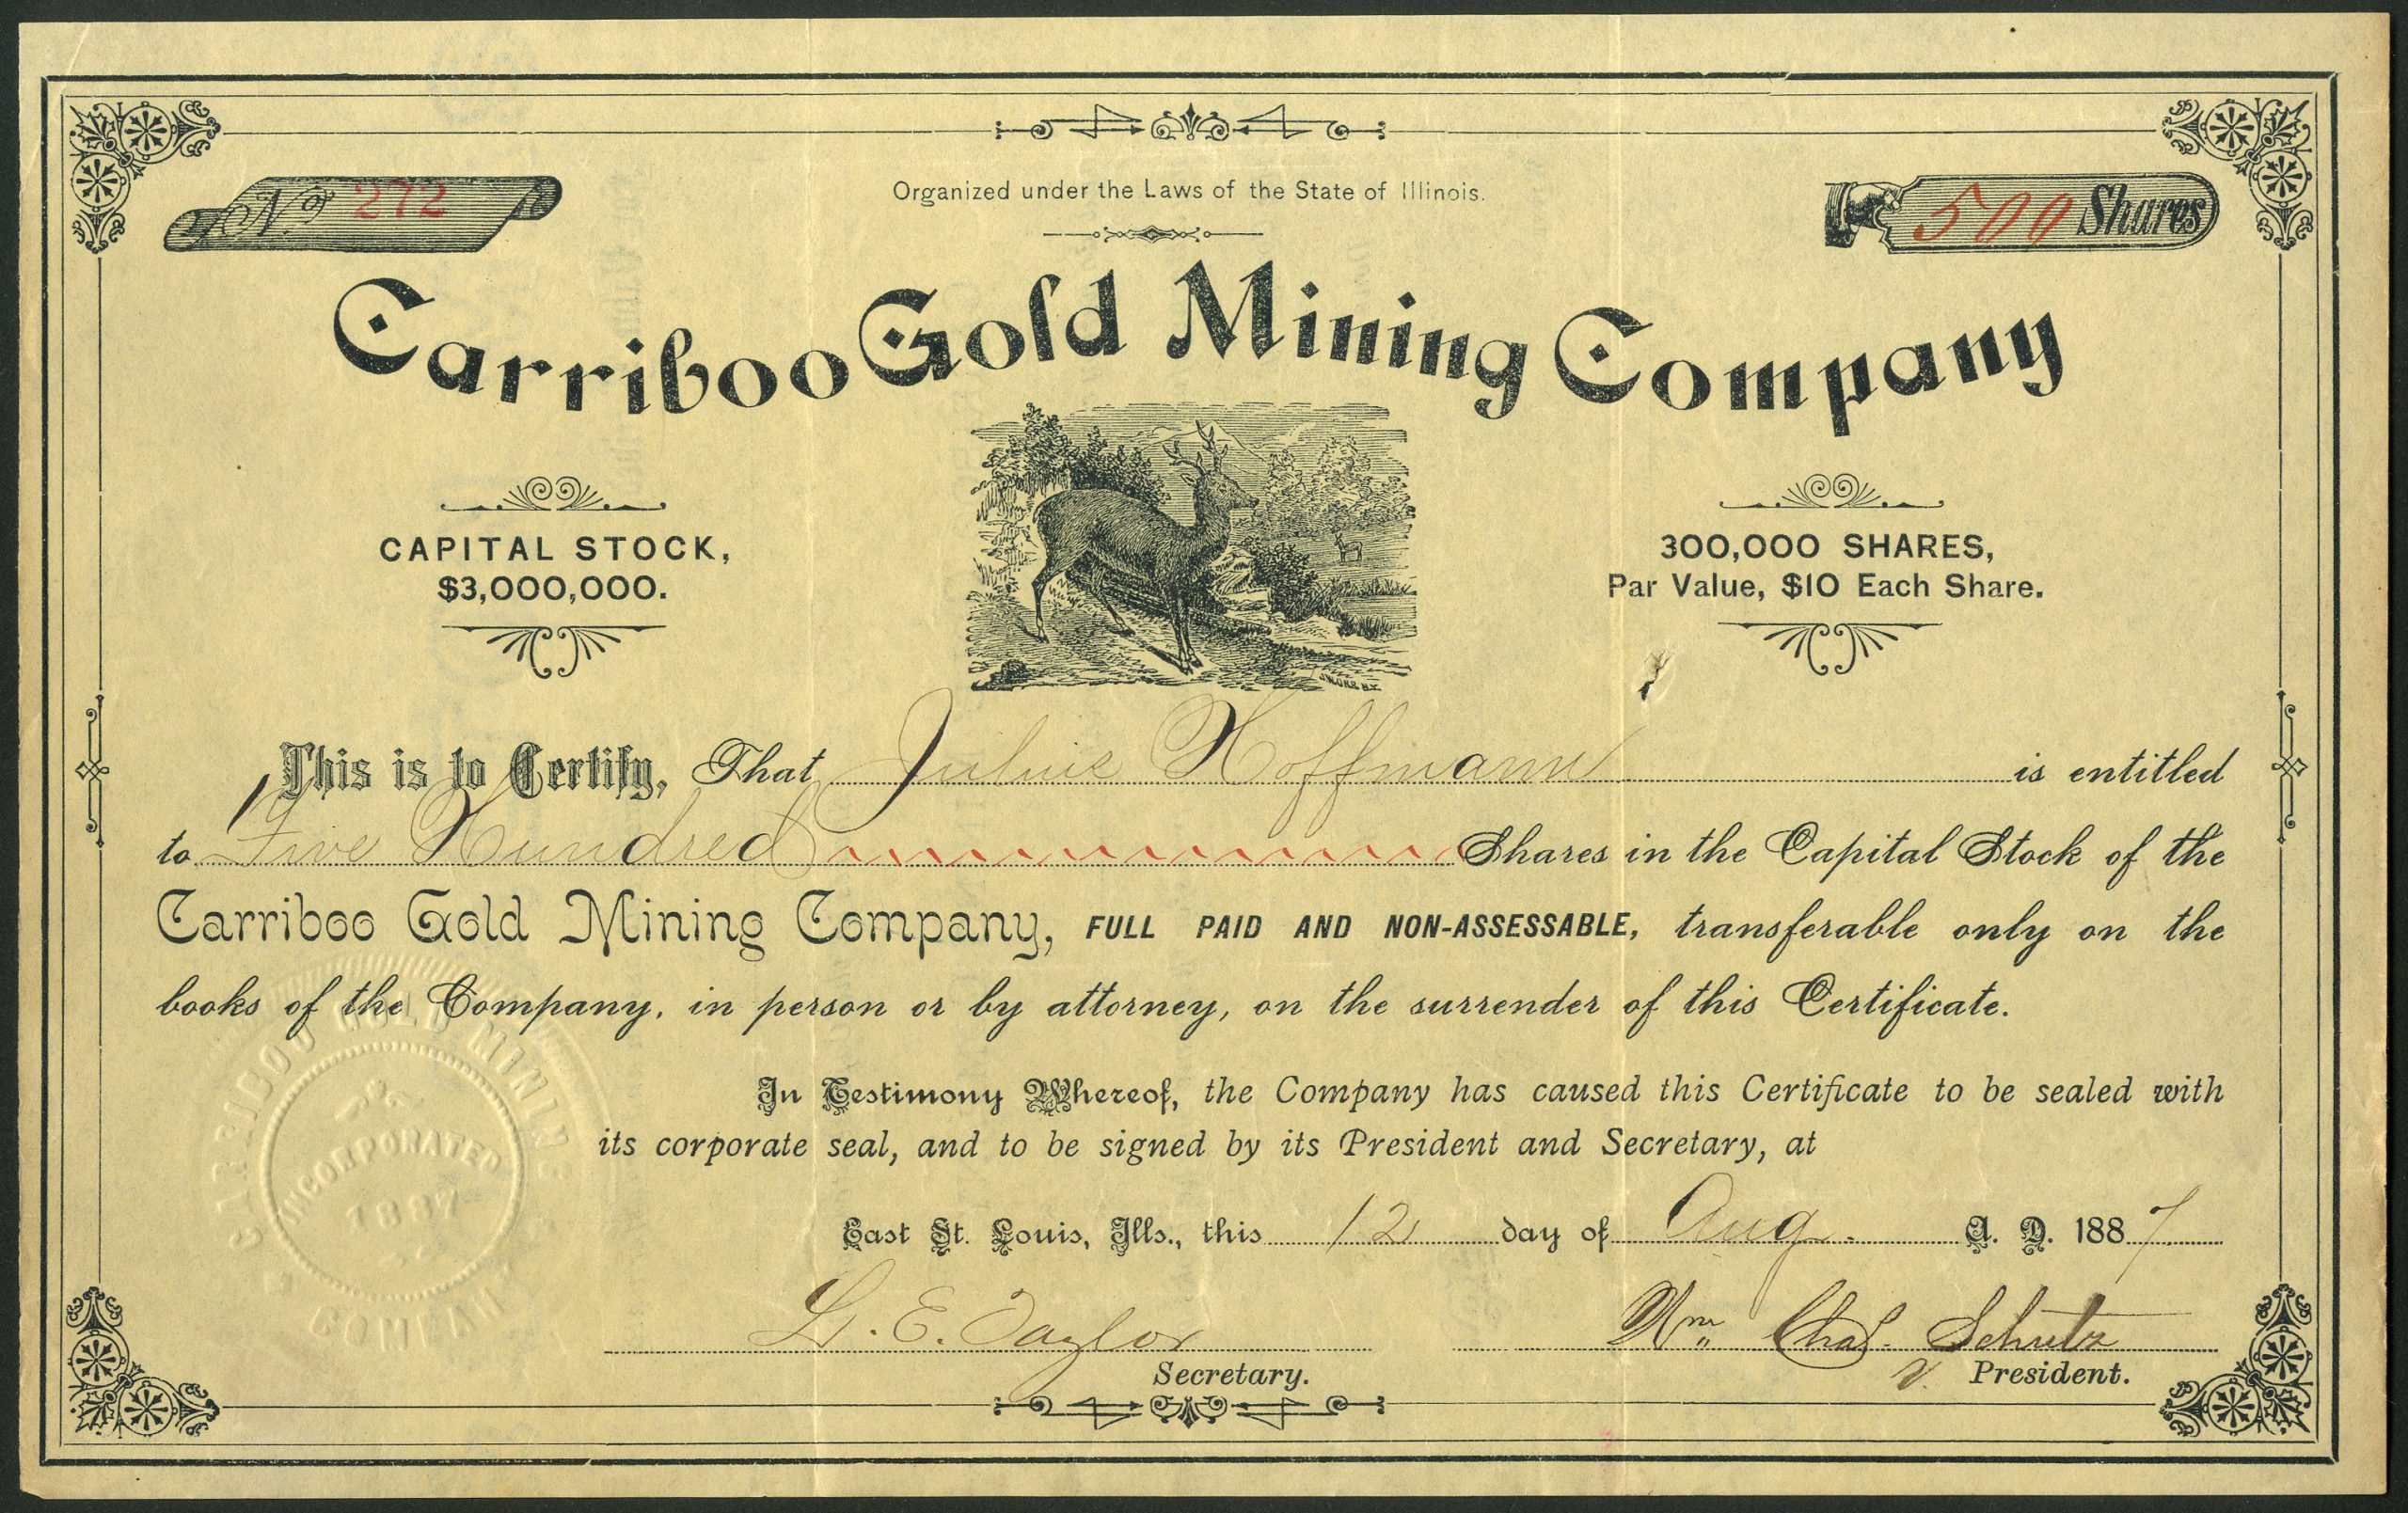 Organized under the Laws of the State of Illinois.
No 272
500 Shares
Carriboo Gold Mining Company
CAPITAL STOCK,
$3,000,000.
300,000 SHARES,
Par Value, $10 Each Share.
J.W. ORR N.Y.
This is to Certify, That Julius Hoffmann is entitled
to Five Hundred Shares in the Capital Stock of the
Carriboo Gold Mining Company, FULL PAID AND NON-ASSESSABLE, transferable only on the
books of the Company, in person or by attorney, on the surrender of this Certificate.
In Testimony Whereof, the Company has caused this Certificate to be sealed with
its corporate seal, and to be signed by its President and Secretary, at
East St. Louis, Ills., this 12 day of Aug. A. D. 1887
L. E. Taylor
Secretary.
Wm Chas. Schutz
V. President.
CARRIBOO GOLD MINING COMPANY
INCORPORATED
1887